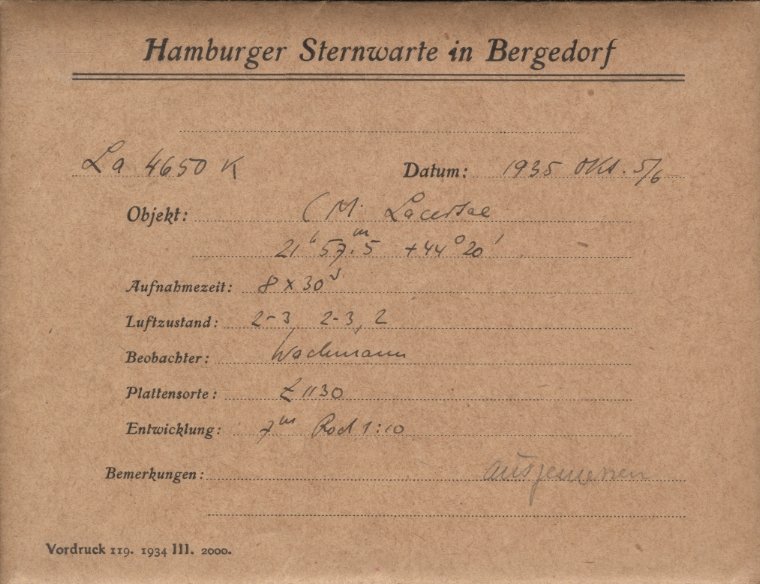 Hamburger Sternwarte in Bergedorf
La 4650 K Datum: 1935 Okt. 5/6
Objekt: CM Lacertae
21ʰ 57ᵐ.5 +44° 20'
Aufnahmezeit: 8 x 30ˢ
Luftzustand: 2-3, 2-3, 2
Beobachter: Wachmann
Plattensorte: 1130
Entwicklung: 7ᵐ Rod 1:10
Bemerkungen: ausgemessen
Vordruck 119. 1934 III. 2000.